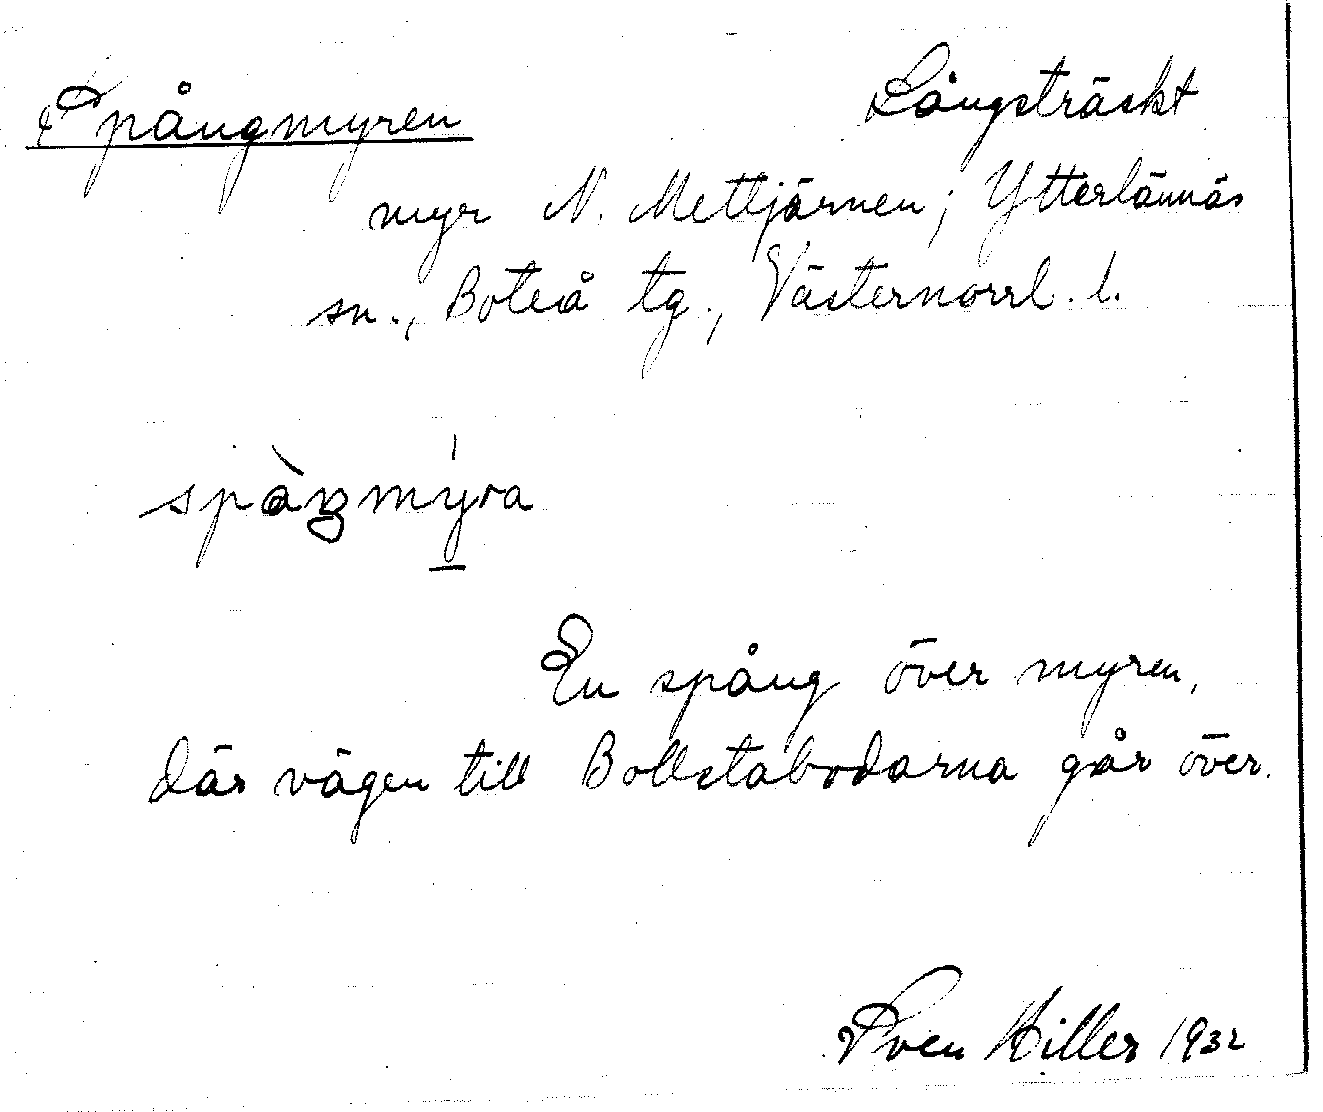 Spångmyren Långsträskt
myr N. Mettjärnen; Ytterlännäs
sn., Boteå tg., Västernorrl. l.
spàŋmýra
En spång över myren,
där vägen till Bollstabodarna går över.
Sven Hiller 1932